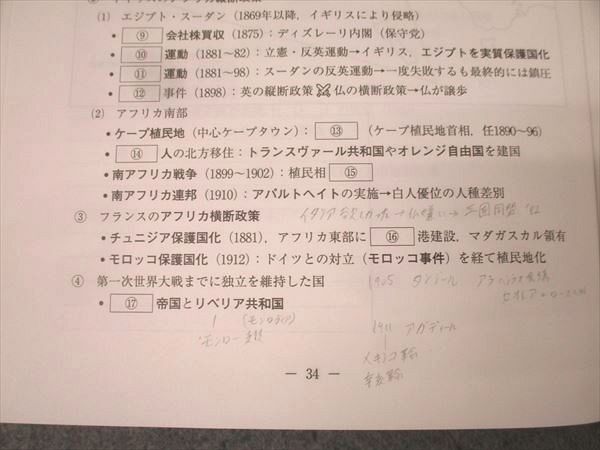 (1) エジプト・スーダン（1869年以降，イギリスにより侵略）
• ⑨ 会社株買収（1875）：ディズレーリ内閣（保守党）
• ⑩ 運動（1881～82）：立憲・反英運動→イギリス，エジプトを実質保護国化
• ⑪ 運動（1881～98）：スーダンの反英運動→一度失敗するも最終的には鎮圧
• ⑫ 事件（1898）：英の縦断政策 仏の横断政策→仏が譲歩
(2) アフリカ南部
• ケープ植民地（中心ケープタウン）：⑬（ケープ植民地首相，任1890～96）
• ⑭ 人の北方移住：トランスヴァール共和国やオレンジ自由国を建国
• 南アフリカ戦争（1899～1902）：植民相 ⑮
• 南アフリカ連邦（1910）：アパルトヘイトの実施→白人優位の人種差別
③ フランスのアフリカ横断政策
• チュニジア保護国化（1881），アフリカ東部に ⑯ 港建設，マダガスカル領有
• モロッコ保護国化（1912）：ドイツとの対立（モロッコ事件）を経て植民地化
④ 第一次世界大戦までに独立を維持した国
1905 タンジール
• ⑰ 帝国とリベリア共和国
1911 アガディール
— 34 —